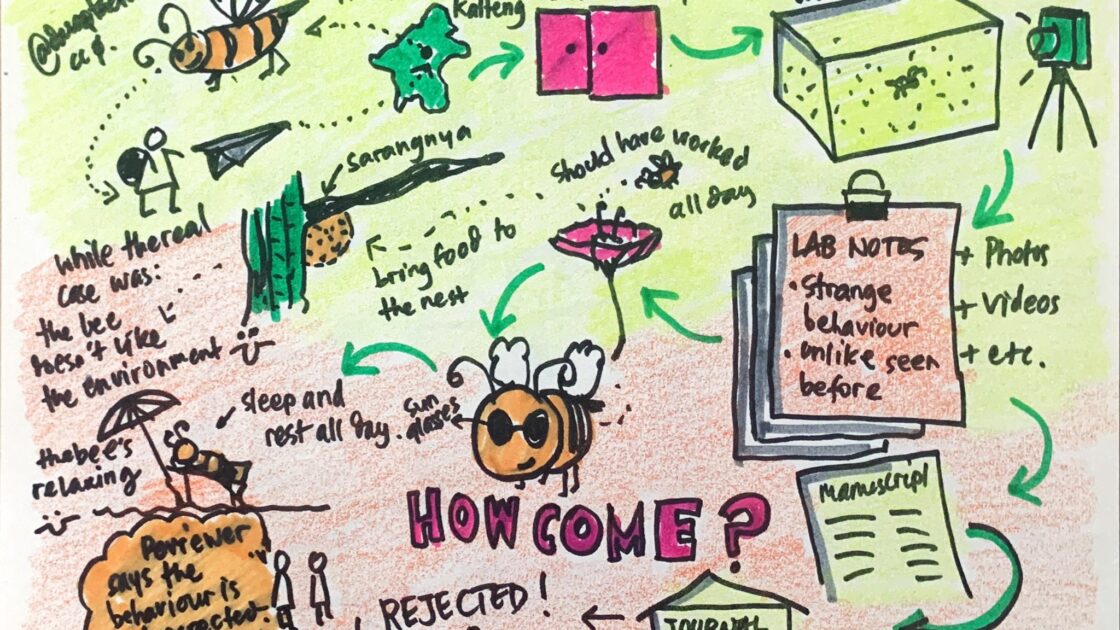 Kalteng
Sarangnya
should have worked
all day
bring food to
the nest
While the real
case was:
the bee
doesn't like
the environment
LAB NOTES
• Strange
behaviour
• unlike seen
before
+ Photos
+ Videos
+ etc.
sleep and
rest all day.
sun
glasses
the bee's
relaxing
HOW COME?
Manuscript
Reviewer
says the
behaviour is
REJECTED!
JOURNAL